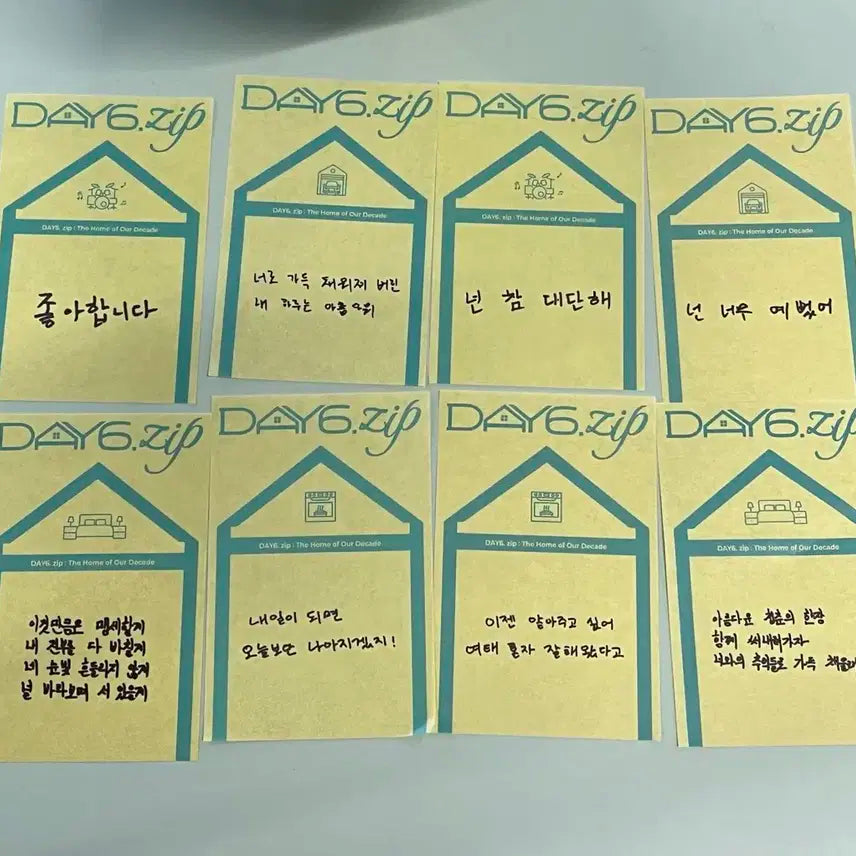 DAY6.zip
DAY6. zip : The Home of Our Decade
좋아합니다
DAY6.zip
DAY6. zip : The Home of Our Decade
너로 가득 채워져 버린
내 하루는 아름다워
DAY6.zip
DAY6. zip : The Home of Our Decade
넌 참 대단해
DAY6.zip
DAY6. zip : The Home of Our Decade
넌 너무 예뻤어
DAY6.zip
DAY6. zip : The Home of Our Decade
이것만큼은 맹세할게
내 전부를 다 바칠게
네 눈빛 흔들리지 않게
널 바라보며 서 있을게
DAY6.zip
DAY6. zip : The Home of Our Decade
내일이 되면
오늘보단 나아지겠지!
DAY6.zip
DAY6. zip : The Home of Our Decade
이젠 알아주고 싶어
여태 혼자 잘해왔다고
DAY6.zip
DAY6. zip : The Home of Our Decade
아름다운 청춘의 한장
함께 써내려가자
너와의 추억들로 가득